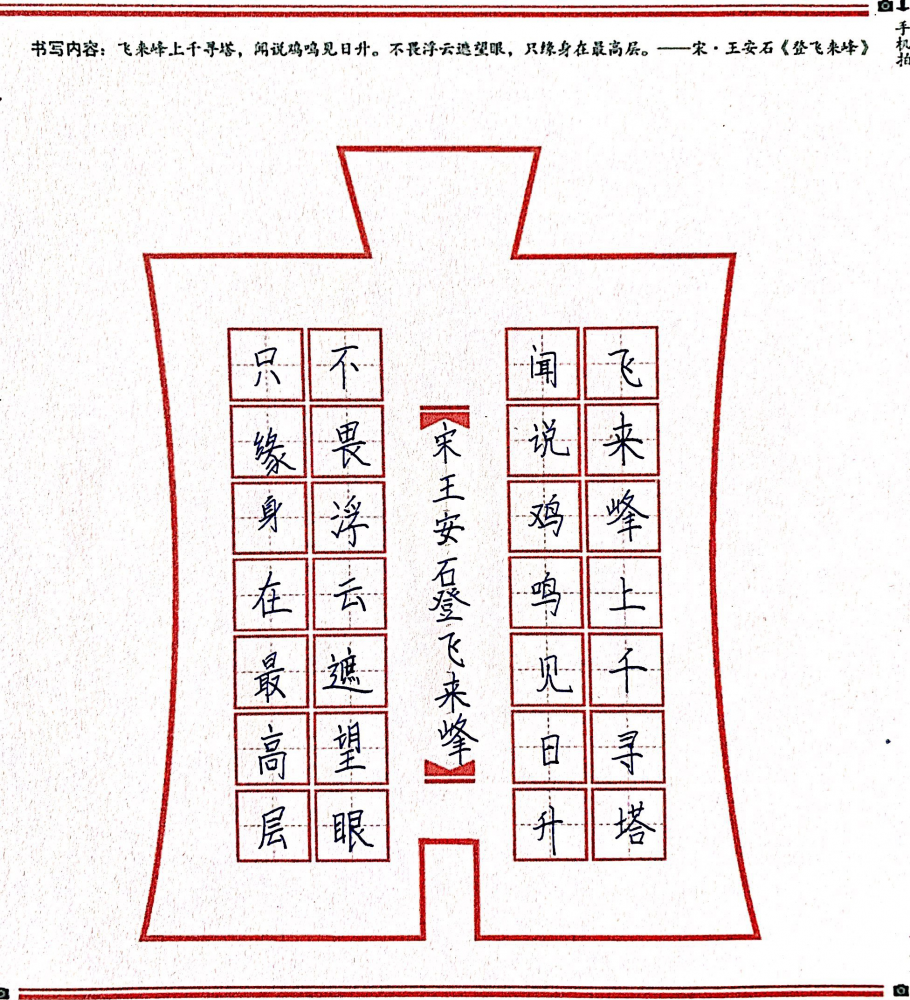 书写内容：飞来峰上千寻塔，闻说鸡鸣见日升。不畏浮云遮望眼，只缘身在最高层。——宋·王安石《登飞来峰》
手机拍
飞来峰上千寻塔
闻说鸡鸣见日升
宋王安石登飞来峰
不畏浮云遮望眼
只缘身在最高层